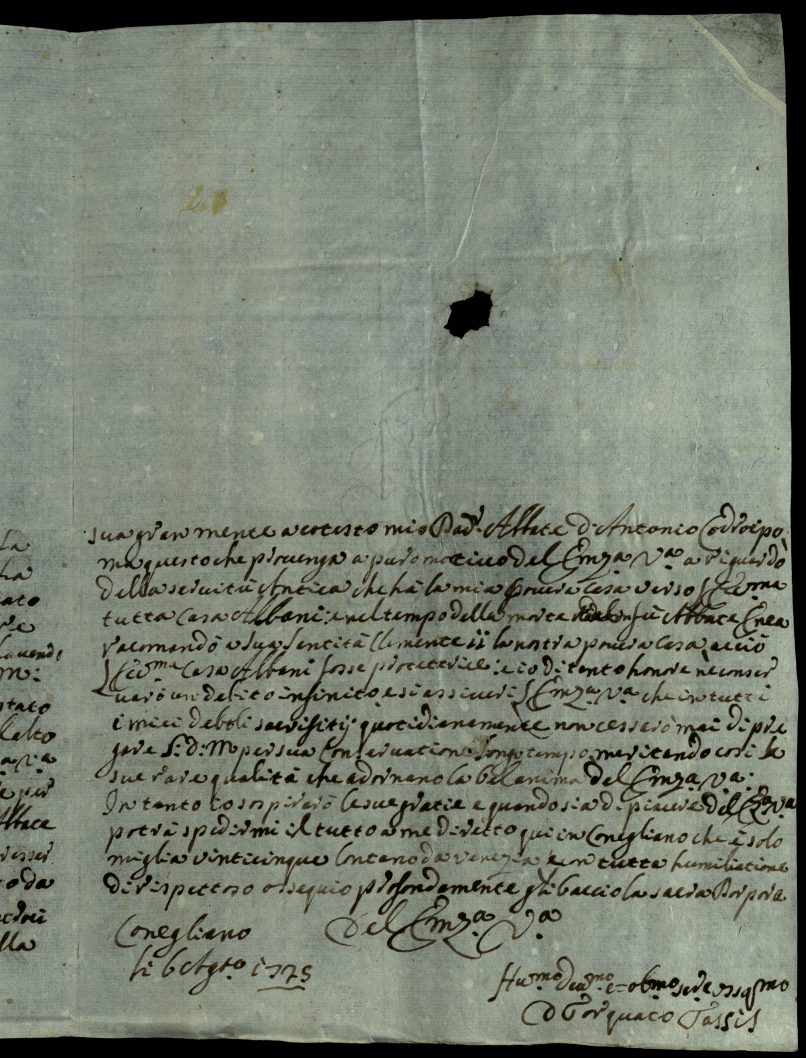 sua gran mente a cotesto mio Pad.r Abbate D: Antonio Codroipo
ma questo che provenga a puro motivo del Emza. Va. a riguardo
della servitù Antica che hà la mia povera Casa verso
tutta Casa Albani: e nel tempo della morte Abbate Enea
racomandò a Sua Santità Clemente la nostra povera casa acciò
Casa Albani fosse protettrice: e io di tanto honore ne conser
uarò un debito infinito, e si assicuri Emza. Va. che in tutti
i miei deboli sacrifitij quotidianamente non cessarò mai di pre
gare S: D: M per sua Conservatione longo tempo meritando cosi la
sue rare qualità che adornano la bel anima del Emza. Va:
In tanto io sospirarò le sue gratie e quando sia di piacere del Emza Va
potrà spedirmi il tutto a me diretto qui in Conegliano che è solo
miglia vinticinque lontano da Venezia e con tutta humiliatione
di rispettoso ossequio profondamente gli baccio la sacra Porpora
Conegliano Del Emza. Va.
li 6 Agto. 1725
Humo Devmo et obmo
D Torquato Tassis
la
ha
cato
re
M:
stato
l'alto
a. va.
e per
Abbate
esser
to da
lla